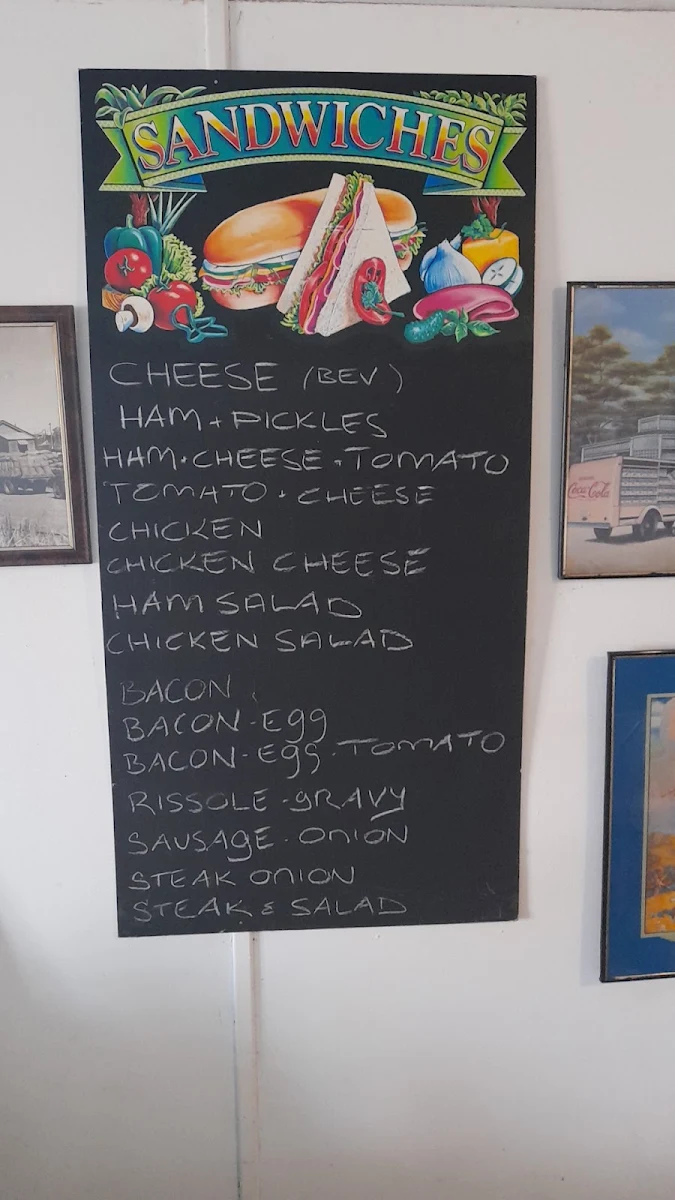 SANDWICHES
CHEESE (BEV)
HAM + PICKLES
HAM + CHEESE + TOMATO
TOMATO + CHEESE
CHICKEN
CHICKEN CHEESE
HAM SALAD
CHICKEN SALAD
BACON
BACON-Egg
BACON-Egg-TOMATO
RISSOLE-gRAVY
SAUSAgE-OnION
STEAK OnION
STEAK & SALAD
Coca-Cola